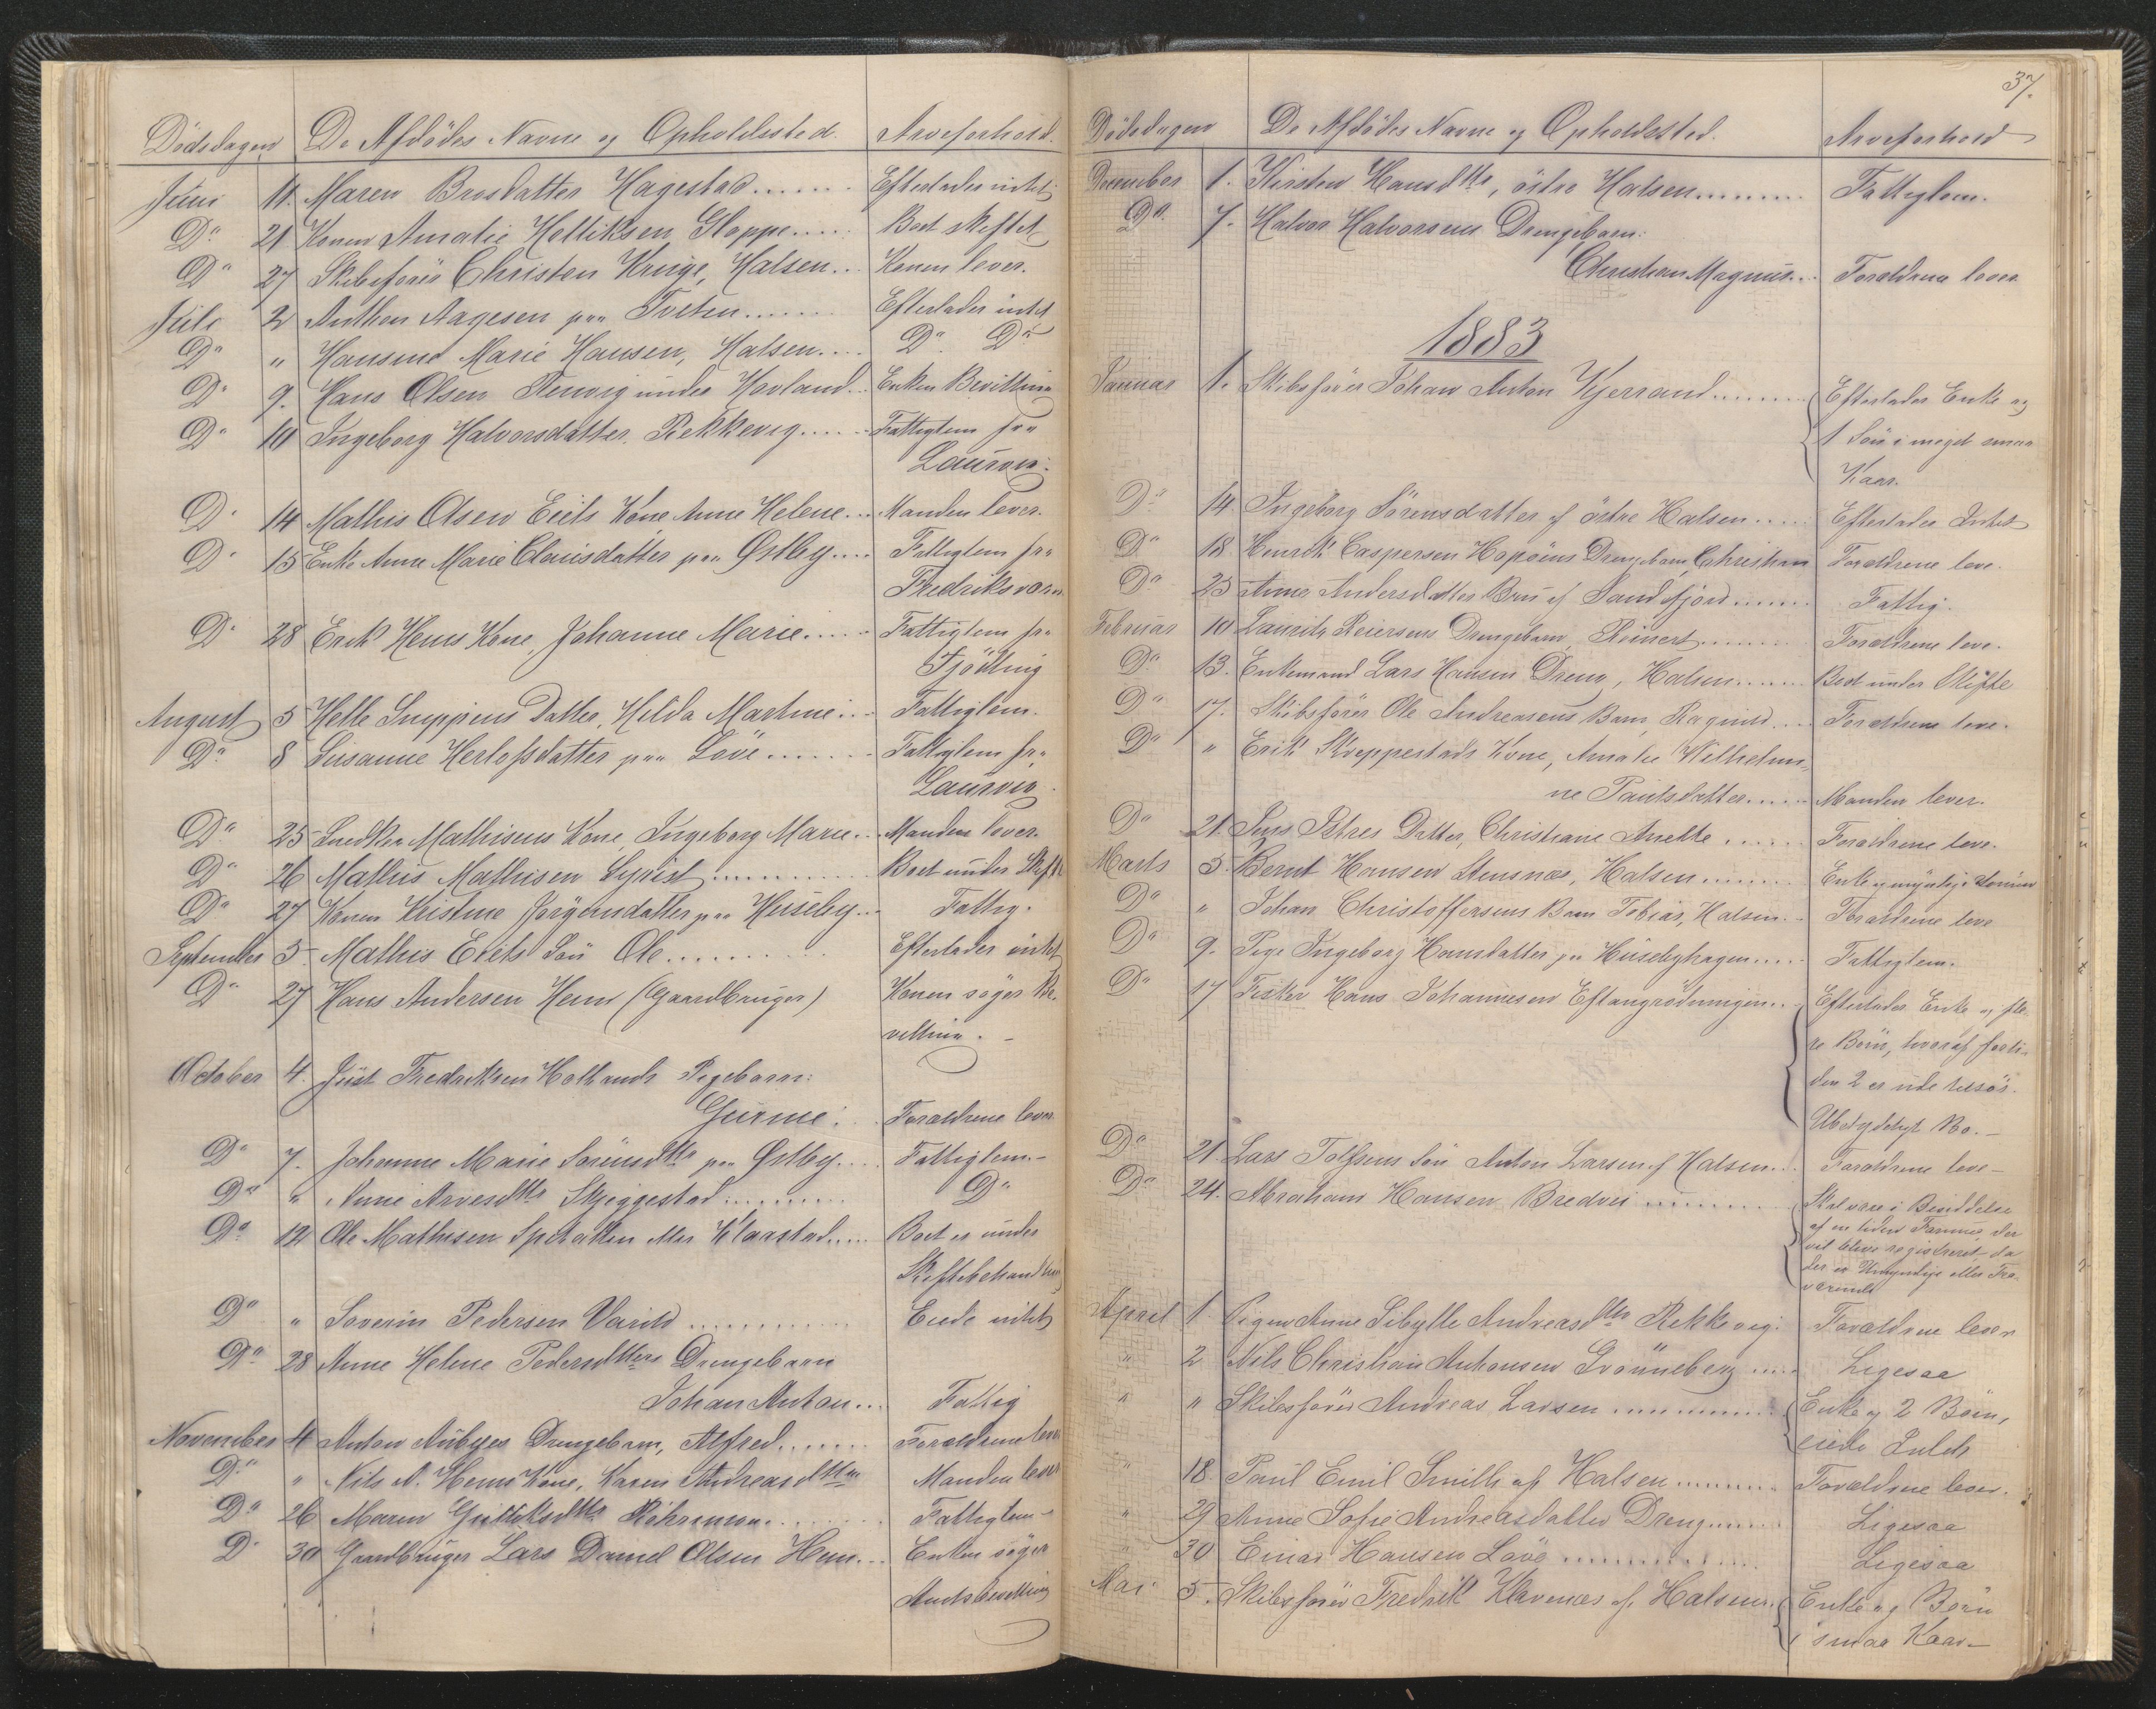 Dödsdagen De Afdödes Navne og Opholdssted. Arveforhold.
Juni 11. Maren Brosdatter Hagestad....... Efterlader intet
Do 21 Konen Amalie Holliksen Gloppe..... Boet skiftet
Do 27 Skibsförer Christen Kruge, Halsen... Konen lever.
Juli 2 Anthon Aagesen paa Tveten....... Efterlader intet
Do " Hansine Marie Hansen, Halsen.... Do Do
Do 9. Hans Olsen under Hovland... Enken Bevilling
Do 10 Ingeborg Halvorsdatter, Rekkevig..... Fattiglem fra
Laurvig.
Do 14 Mathis Olsen Eeits Kone Anne Helene... Manden lever.
Do 15 Enke Anne Marie Clausdatter paa Østby.... Fattiglem fra
Fredriksværn
Do 28 Erik Hems Kone, Johanne Marie..... Fattiglem fra
Tjölling
August 5 Helle Datter, Hilda Martine... Fattiglem.
Do 8 Susanne Herlofsdatter paa Löve....... Fattiglem fra
Laurvig.
Do 25 Snedker Mathisens Kone, Ingeborg Marie... Manden lever.
Do 26 Mathis Mathisen Syrist........... Boet under Skifte
Do 27 Konen Kristine Jörgensdatter paa Huseby... Fattig.
September 5 Mathis Eeits Sön Ole.......... Efterlader intet
Do 27 Hans Andersen Hem (Gaardbruger) Konen söger Be-
villing. -
October 4. Just Fredriksen Hollands Pigebarn:
Gurine... Forældrene lever
Do 7. Johanne Marie Sörensdtr paa Østby.... Fattiglem.-
Do " Anne Arvesdtr Skjeggestad......... Do
Do 12 Ole Mathisen eller Klaastad..... Boet er under
Skiftebehandling
Do " Soverin Pedersen Varild............ Eiede intet
Do 28 Anne Helene Pedersdtters Drengebarn
Johan Anton... Fattig
November 4 Anton Aubyes Drengebarn, Alfred....... Forældrene lever
Do " Nils A. Hems Kone, Karen Andreasdtter Manden lever
Do 26 Maren Gulliksdtr ........ Fattiglem-
Do 30 Gaardbruger Lars Daniel Olsen Hem... Enken söger
Amtsbevilling
37.
Dödsdagen De Afdödes Navne og Opholdssted. Arveforhold
December 1. Kirsten Hansdtr, östre Halsen......... Fattiglem.
Do 7. Halvor Halvorsens Drengebarn:
Christian Magnus... Forældrene lever
1883
Januar 1. Skibsförer Johan Anton Kjerrand......... Efterlader Enke og
1 Sön i meget smaa
Kaar.
Do 14. Ingeborg Sörensdatter af östre Halsen..... Efterlader Intet
Do 18. Henrik Caspersen Hopsöens Drengebarn, Christian Forældrene leve.
Do 25 Anne Andersdatter Bru af Sandefjord....... Fattig.
Februar 10 Lauritz Reiersens Drengebarn, Reinert......... Forældrene leve.
Do 13. Enkemand Lars Hansen Dreng, Halsen....... Boet under Skifte
Do 17. Skibsförer Ole Andreasens Barn, Ragnild.... Forældrene leve.
Do " Erik Skreppestads Kone, Amalie Wilhelmi-
ne Paulsdatter..... Manden lever.
Do 21. Jens Istres Datter, Christiane Anette ...... Forældrene leve.
Marts 5. Bernt Hansen Stensnæs, Halsen....... Enke og myndige Sönner
Do " Johan Christoffersens Barn Tobias, Halsen... Forældrene leve
Do 9. Pige Ingeborg Hansdatter paa Husebyhagen..... Fattiglem.
Do 17 Fisker Hans Johannesen Eftangrödningen.. Efterlader Enke og fle-
re Börn, hvoraf forti-
den 2 er ude tilsös.
Ubetydeligt Bo.-
Do 21. Lars Tolfsens Sön Anton Larsen af Halsen... Forældrene leve-
Do 24. Abraham Hansen Bredvei ............ Skal være i Besiddelse
af en liden Formue, der
vil blive registreret, da
der er Umyndige eller Fra-
værende
April 1 Pigen Anne Sibylle Andreasdtter Rekkevig. Forældrene lever
" 2 Nils Christian Antonsen Grönneberg .... Ligesaa
" " Skibsförer Andreas Larsen ............. Enke og 2 Börn,
eiede Intet
" 18. Paul Emil Smith af Halsen........ Forældrene lever.
" 29 Anne Sofie Andreasdatter Dreng...... Ligesaa
" 30 Einar Hansen Löve ............ Ligesaa
Mai 5. Skibsförer Fredrik Klavenæs af Halsen.. Enke og Börn
i smaa Kaar-